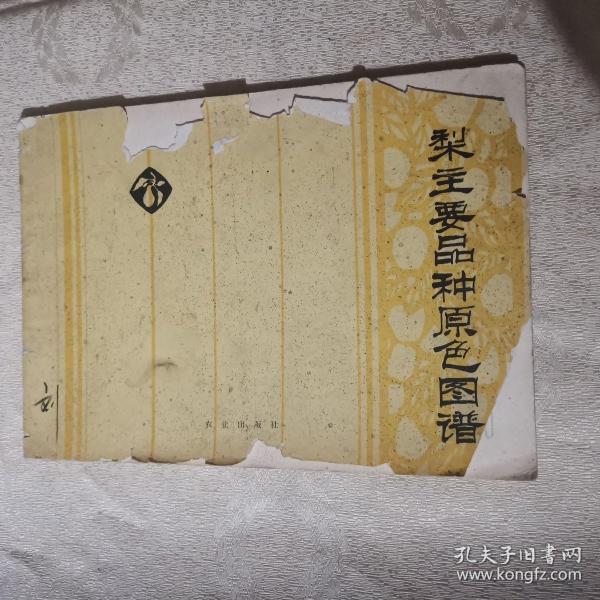 梨主要品种原色图谱
农业出版社
刘
孔夫子旧书网
www.kongfz.com